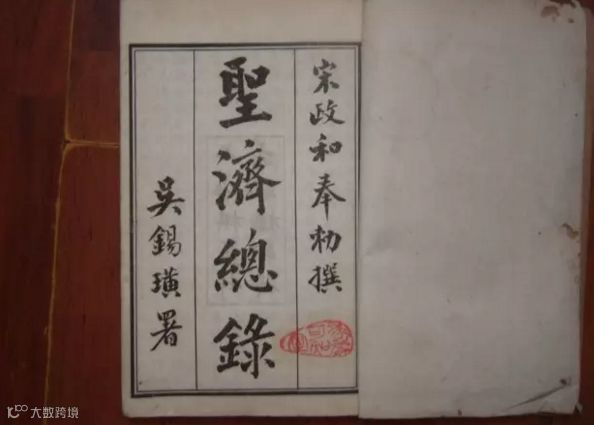 宋政和奉勑撰
聖濟總錄
吳錫璜署
大数跨境